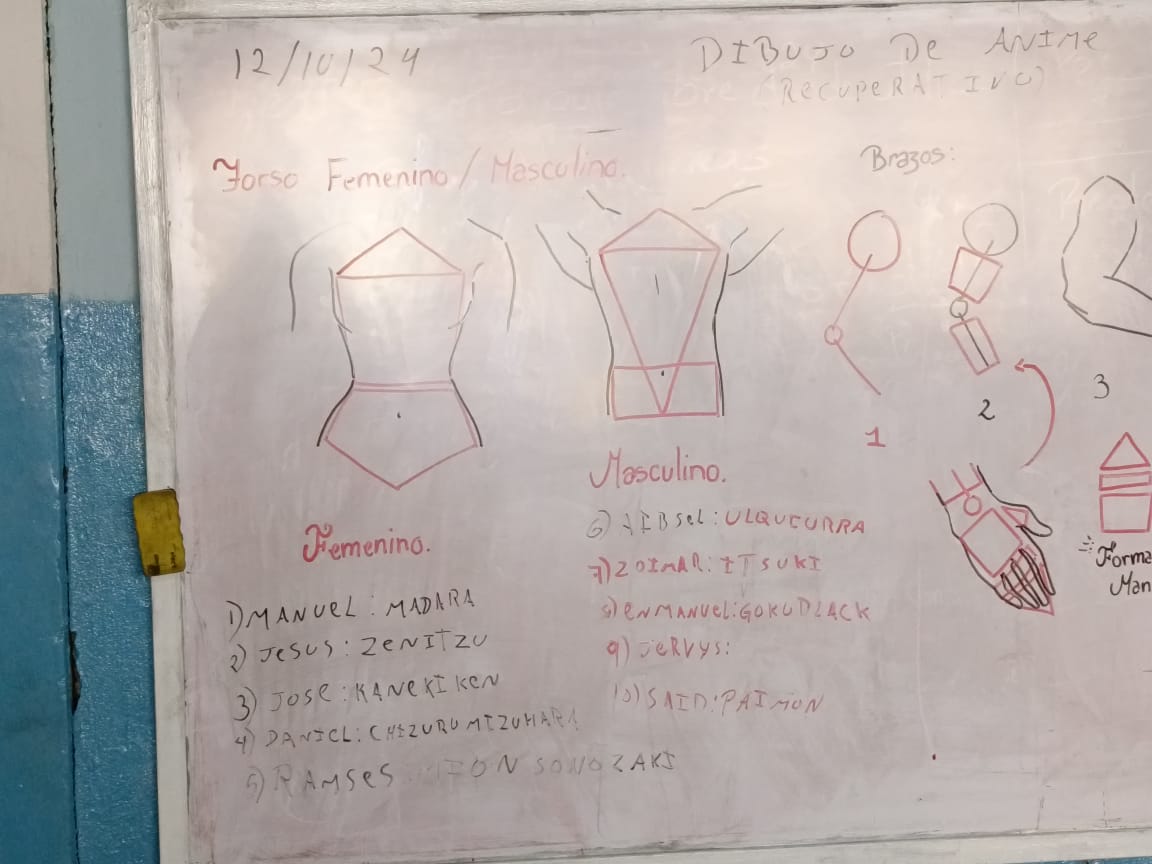 12/10/24
DIBUJO De ANIMe
(RecupeRATIVO)
Torso Femenino/Masculino.
Brazos:
1
2
3
Masculino.
Femenino.
Forma
Man
1) MANUEL: MADARA
2) JESUS: ZeNITZU
3) JOSe: KANeKI KeN
4) DANIEL: CHIZURU MIZUHARA
5) RAMSeS SONOZAKI
6) AIBSeL: ULQUCURRA
7) ZOIMAR: ITSUKI
8) eNMANUeL: GOKU BLACK
9) JeRVYS:
10) SAID: PAIMON